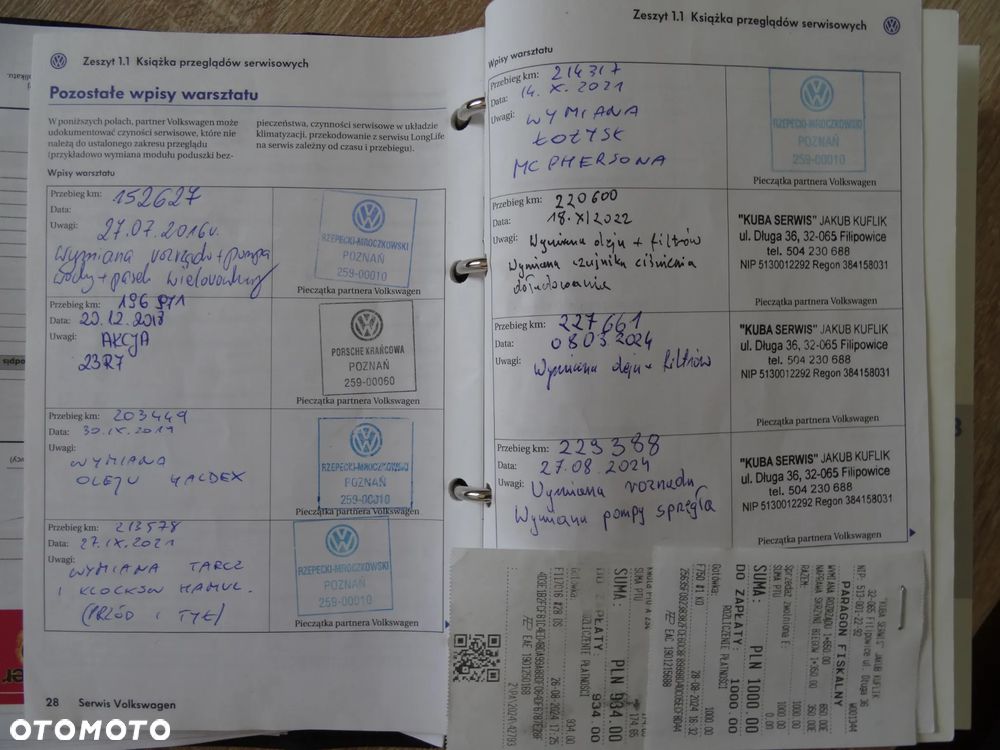 Zeszyt 1.1 Książka przeglądów serwisowych
Pozostałe wpisy warsztatu
W poniższych polach, partner Volkswagen może
udokumentować czyności serwisowe, które nie
należą do ustalonego zakresu przeglądu
(przykładowo wymiana modułu poduszki bez-
pieczeństwa, czynności serwisowe w układzie
klimatyzacji, przekodowanie z serwisu LongLife
na serwis zależny od czasu i przebiegu).
Wpisy warsztatu
Przebieg km: 152627
Data:
Uwagi: 27.07.2016r.
Wymiana rozrządu + pompa
wody + pasek wielorowkowy
RZEPECKI-MROCZKOWSKI
POZNAŃ
259-00010
Pieczątka partnera Volkswagen
Przebieg km: 196971
Data: 20.12.2018
Uwagi: AKCJA
23R7
PORSCHE KRAŃCOWA
POZNAŃ
259-00060
Pieczątka partnera Volkswagen
Przebieg km: 203449
Data: 30.IX.2019
Uwagi:
WYMIANA
OLEJU HALDEX
RZEPECKI-MROCZKOWSKI
POZNAŃ
259-00010
Pieczątka partnera Volkswagen
Przebieg km: 213578
Data: 27.IX.2021
Uwagi:
WYMIANA TARCZ
I KLOCKÓW HAMUL.
(PRZÓD i TYŁ)
RZEPECKI-MROCZKOWSKI
POZNAŃ
259-00010
Pieczątka partnera Volkswagen
28 Serwis Volkswagen
Zeszyt 1.1 Książka przeglądów serwisowych
Wpisy warsztatu
Przebieg km: 214317
Data: 14.X.2021
Uwagi: WYMIANA
ŁOŻYSK
MCPHERSONA
RZEPECKI-MROCZKOWSKI
POZNAŃ
259-00010
Pieczątka partnera Volkswagen
Przebieg km: 220600
Data: 18.XI 2022
Uwagi: Wymiana oleju + filtrów
Wymiana czujnika ciśnienia
doładowania
"KUBA SERWIS" JAKUB KUFLIK
ul. Długa 36, 32-065 Filipowice
tel. 504 230 688
NIP 5130012292 Regon 384158031
Pieczątka partnera Volkswagen
Przebieg km: 227661
Data: 08 03 2024
Uwagi: Wymiana oleju + filtrów
"KUBA SERWIS" JAKUB KUFLIK
ul. Długa 36, 32-065 Filipowice
tel. 504 230 688
NIP 5130012292 Regon 384158031
Pieczątka partnera Volkswagen
Przebieg km: 229388
Data: 27.08.2024
Uwagi: Wymiana rozrządu
Wymiana pompy sprzęgła
"KUBA SERWIS" JAKUB KUFLIK
ul. Długa 36, 32-065 Filipowice
tel. 504 230 688
NIP 5130012292 Regon 384158031
Pieczątka partnera Volkswagen
"KUBA SERWIS" JAKUB KUFLIK
32-065 Filipowice ul. Długa 36
NIP: 513-001-22-92
PARAGON FISKALNY
SUMA PTU 0.00
SUMA: PLN 1000.00
DO ZAPŁATY: 1000.00
ROZLICZENIE PŁATNOŚCI
Gotówka 1000.00
F750 #1 KO 28-08-2024 16:32
EAC 1901215688
SUMA PTU 174.65
SUMA: PLN 934.00
ROZLICZENIE PŁATNOŚCI
Gotówka 934.00
26-08-2024 17:25
EAE 1901250168
OTOMOTO